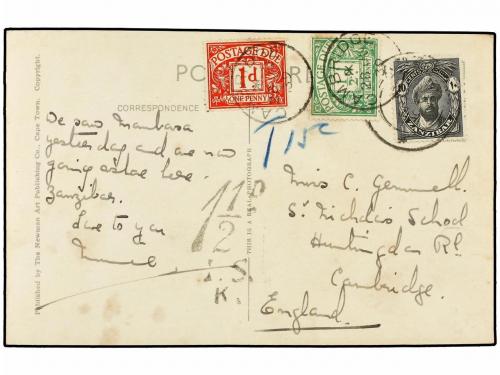 POSTAGE DUE
1d
ONE PENNY
POSTAGE DUE
CAMBRIDGE
ZANZIBAR
POS
CORRESPONDENCE
T 15c
We saw Mombasa
yesterday and are now
going ashore here.
Zanzibar.
Love to you
1 1/2 D
I.S.
K.
Miss C. Gemmell
St Nicholas School
Huntingdon Rd.
Cambridge.
England.
THIS IS A REAL PHOTOGRAPH
Published by The Newman Art Publishing Co., Cape Town. Copyright.